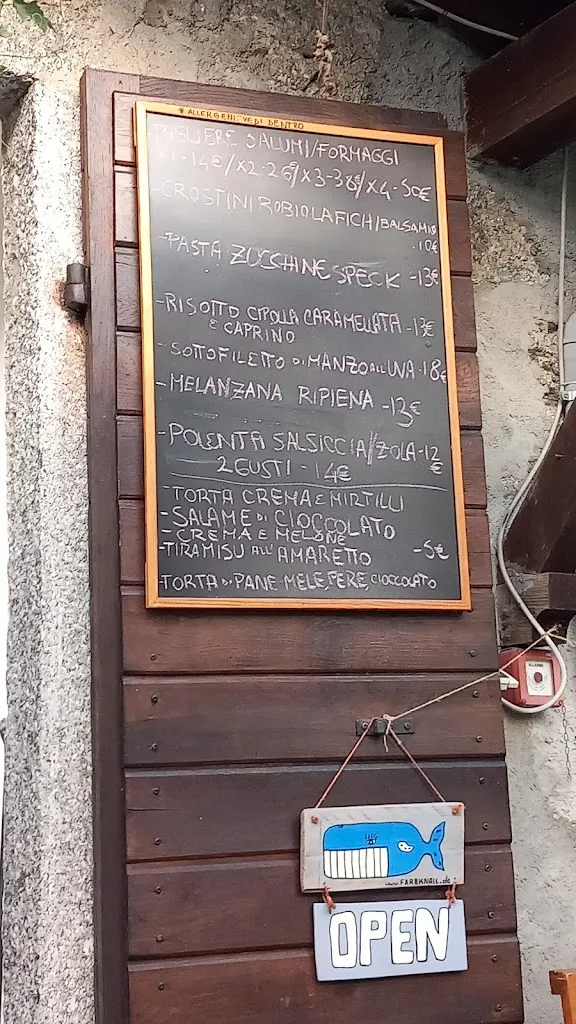 * ALLERGENI VEDI DENTRO
- TAGLIERE SALUMI/FORMAGGI
X1-14€/X2-26€/X3-38€/X4-50€
- CROSTINI ROBIOLA FICHI/BALSAMICO
-10€
- PASTA ZUCCHINE SPECK -13€
- RISOTTO CIPOLLA CARAMELLATA -13€
E CAPRINO
- SOTTOFILETTO DI MANZO ALL'UVA -18€
- MELANZANA RIPIENA -13€
- POLENTA SALSICCIA//ZOLA -12
€
2 GUSTI - 14€
- TORTA CREMA E MIRTILLI
- SALAME DI CIOCCOLATO
- CREMA E MELONE
- TIRAMISU ALL'AMARETTO -5€
- TORTA DI PANE MELE, PERE, CIOCCOLATO
www.FARBKNALL.de
OPEN